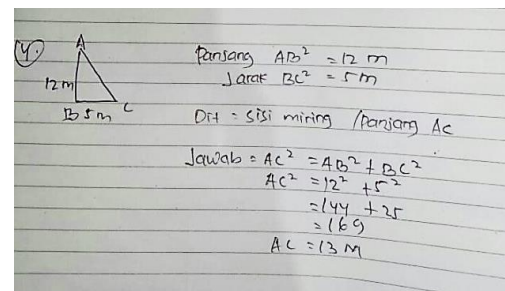 4.
A
12m
B 5m C
Panjang AB² = 12 m
Jarak BC² = 5m
Dit : sisi miring / Panjang AC
Jawab = AC² = AB² + BC²
AC² = 12² + 5²
= 144 + 25
= 169
AC = 13 M